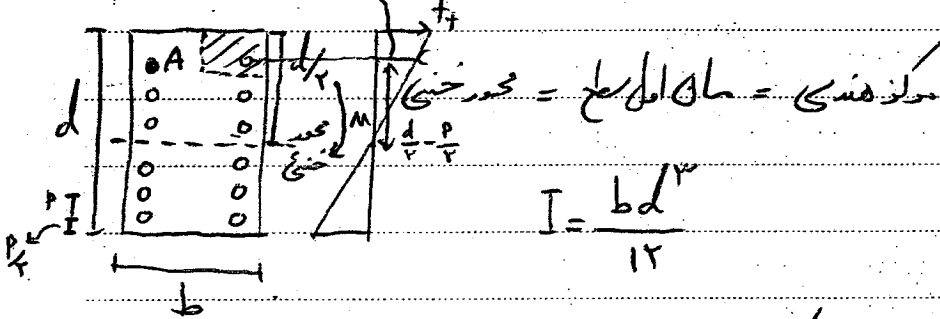 f_t
A
d/۲
d
M
محور خنثی
d/۲ - P/۲
مرکز هندسی = ممان اول سطح = محور خنثی
P
P/۲
b
I = bd^۳/۱۲